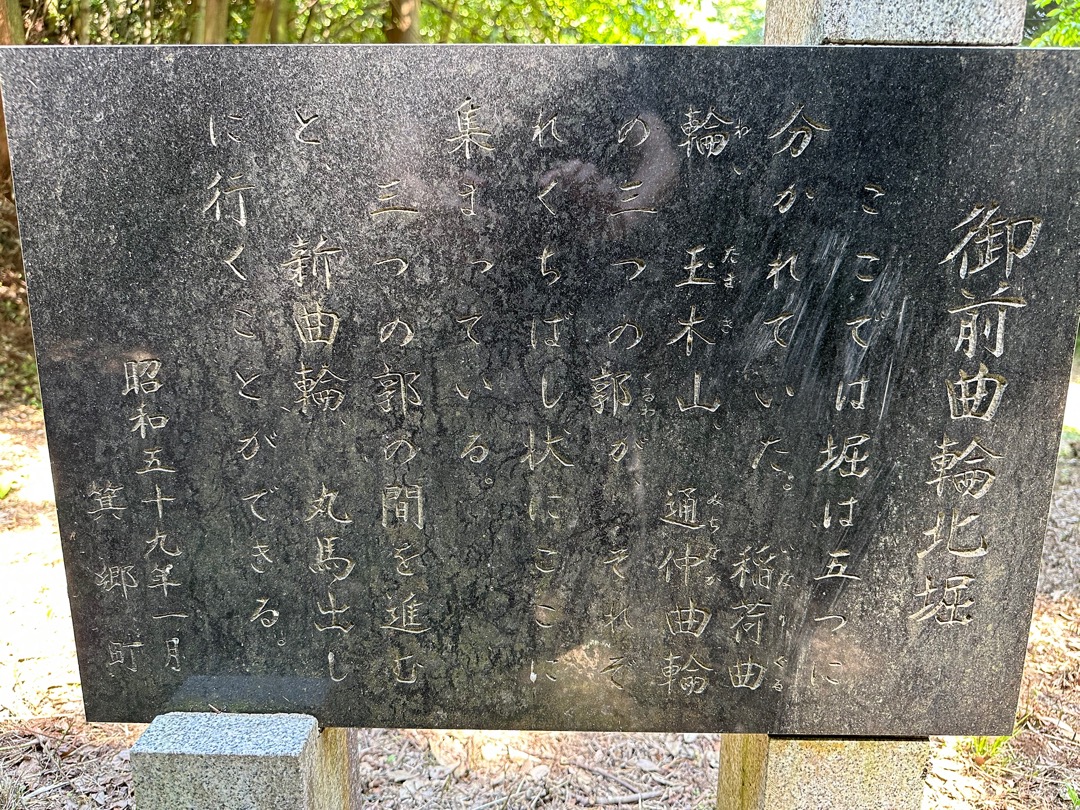 御前曲輪北堀
ここでは堀は五つに
いなりぐる
分かれていた。稲荷曲
わ たまき みちなか
輪、玉木山、通仲曲輪
くるわ
の三つの郭が、それぞ
れくちばし状にここに
集まっている。
三つの郭の間を進む
と新曲輪、丸馬出し
に行くことができる。
昭和五十九年一月
箕郷町